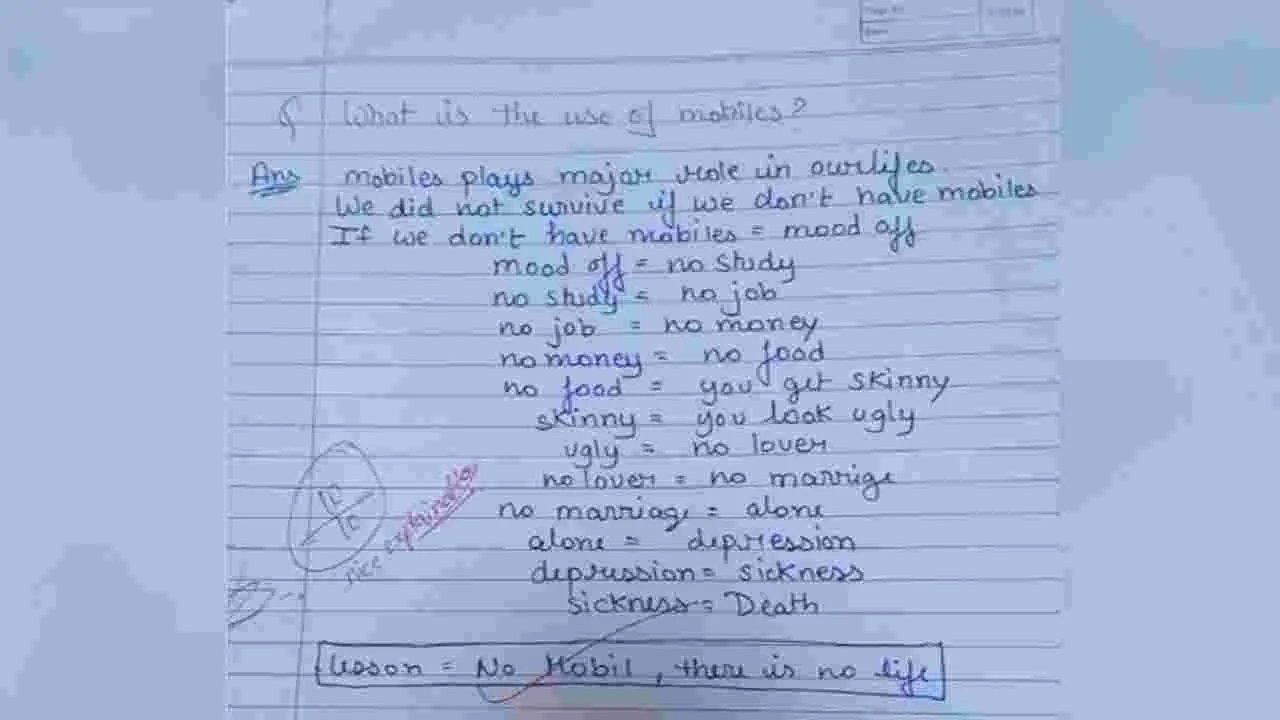 Q What is the use of mobiles?
Ans mobiles plays major role in our lifes.
We did not survive if we don't have mobiles
If we don't have mobiles = mood off
mood off = no study
no study = no job
no job = no money
no money = no food
no food = you get skinny
skinny = you look ugly
ugly = no lover
no lover = no marrige
no marriage = alone
alone = depression
depression = sickness
sickness = Death
10/10
nice explaination
lesson = No Mobil, there is no life